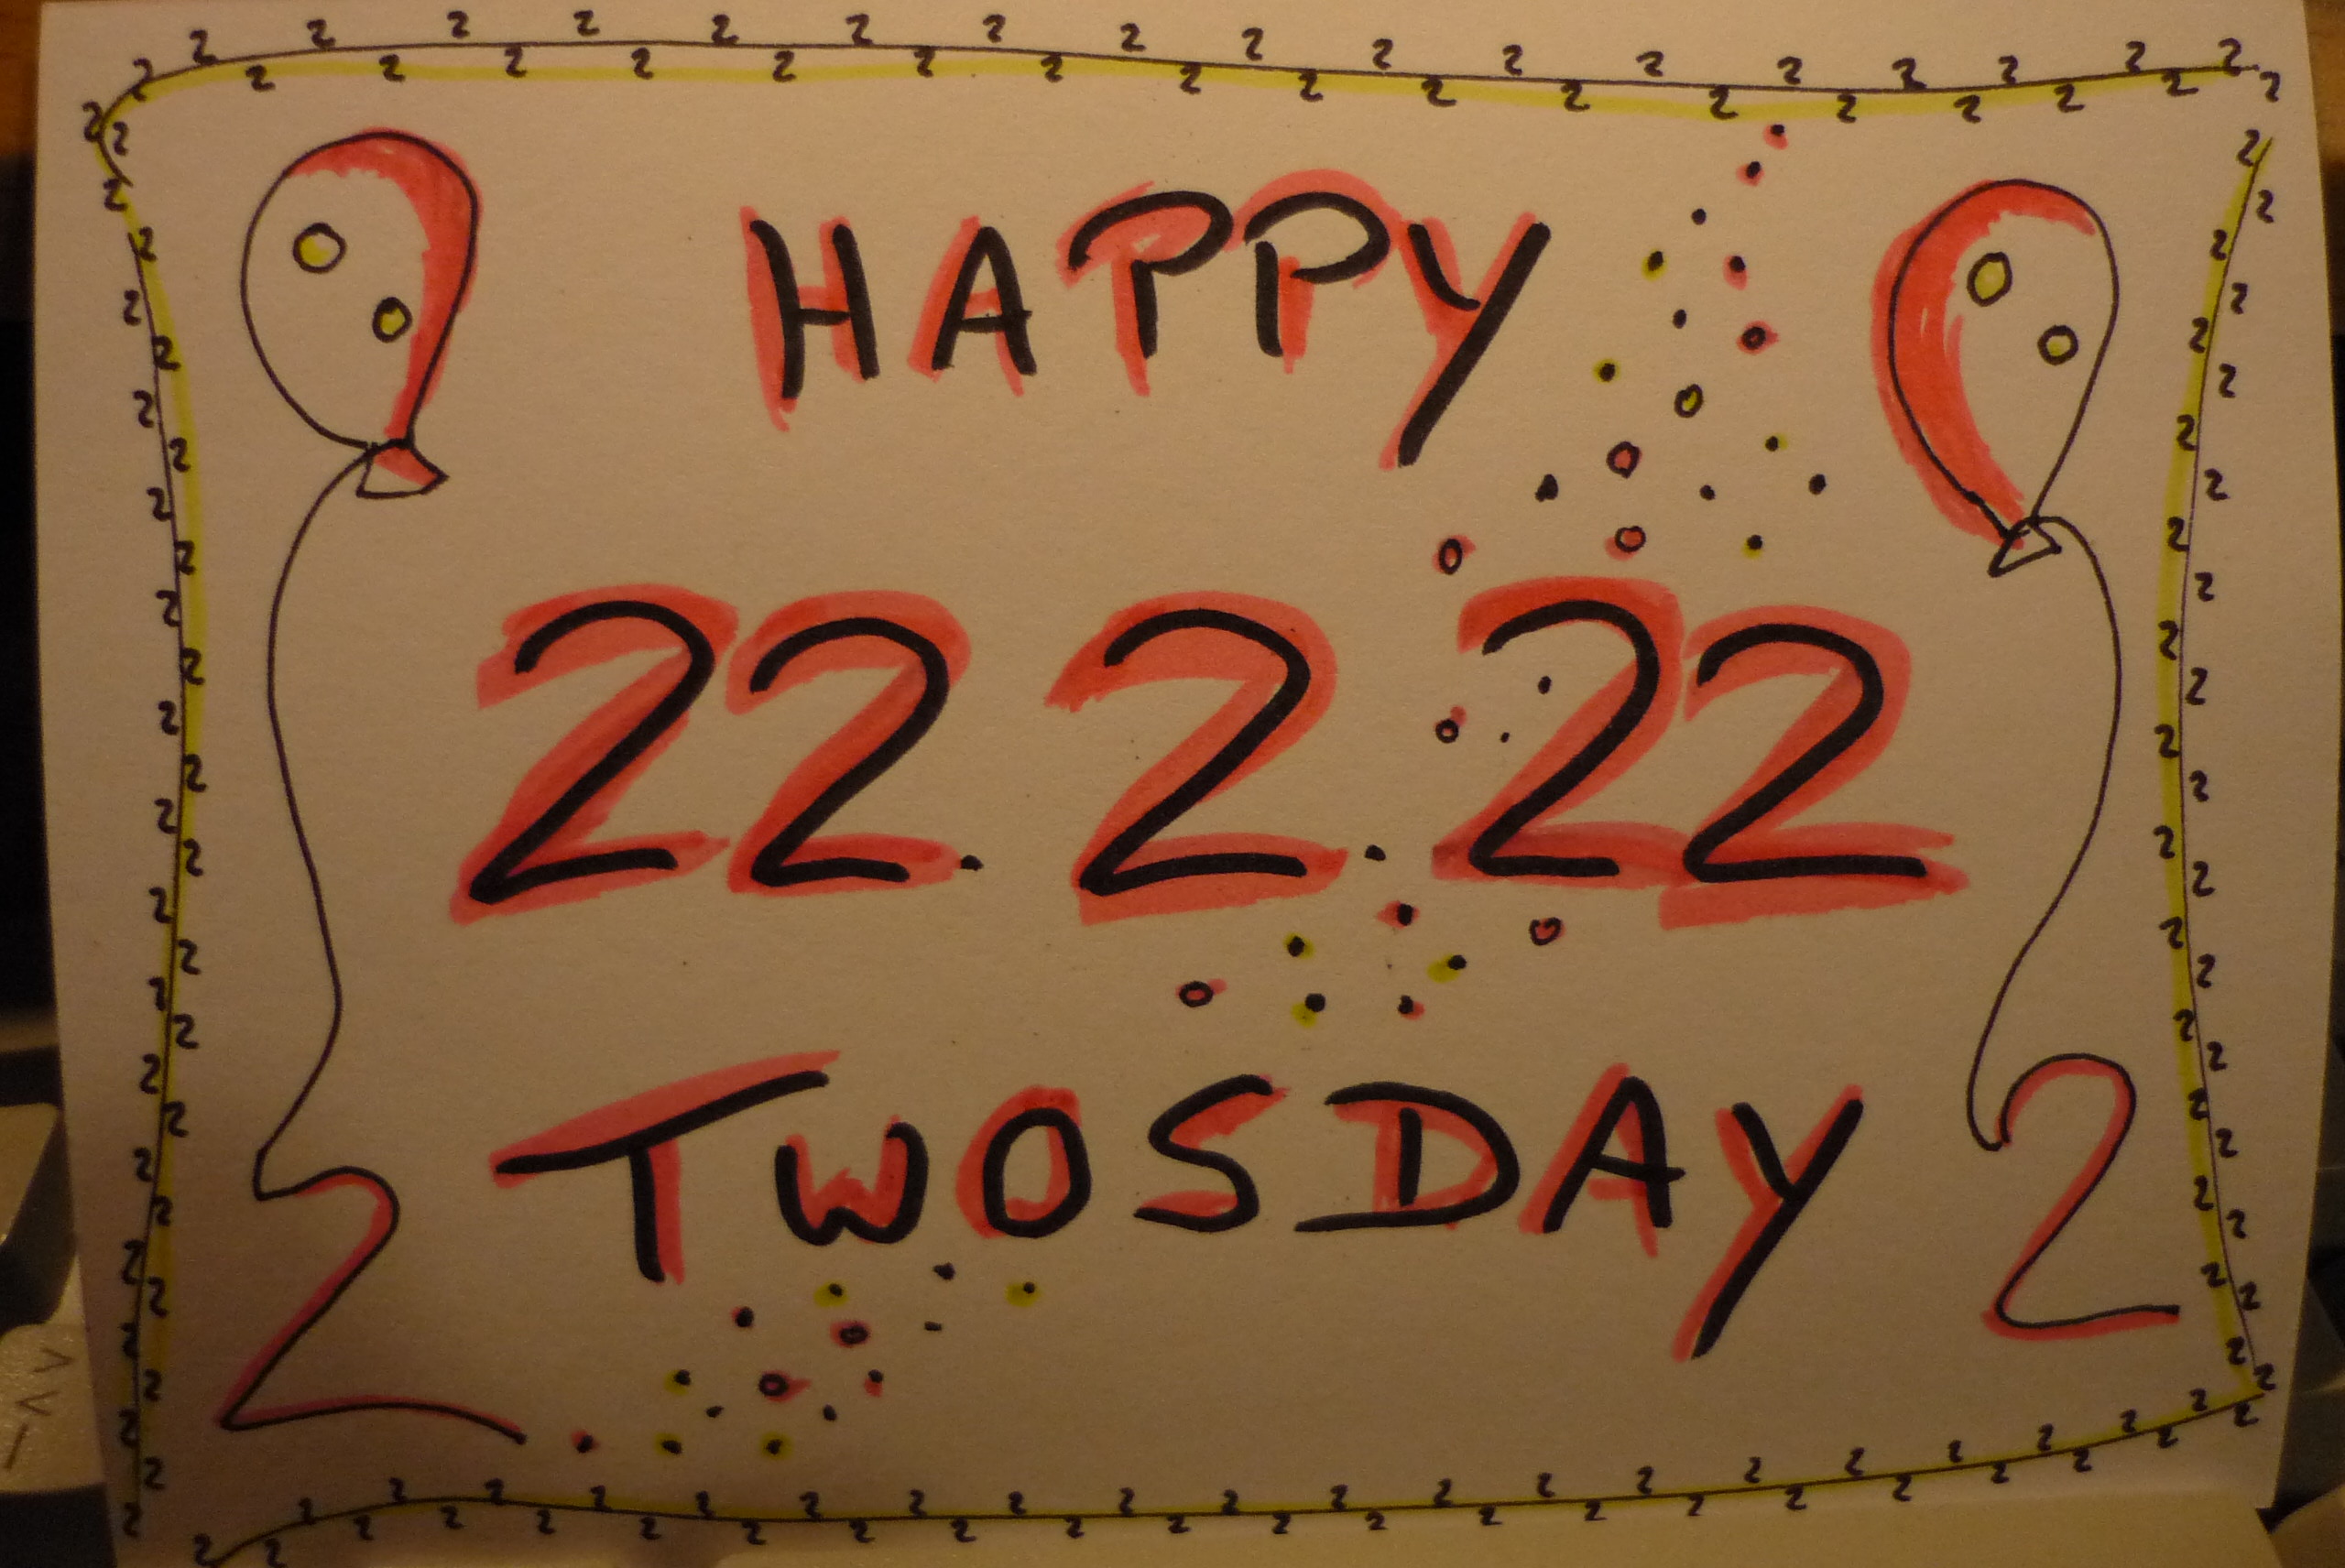 HAPPY
22.2.22
TWOSDAY
2
2